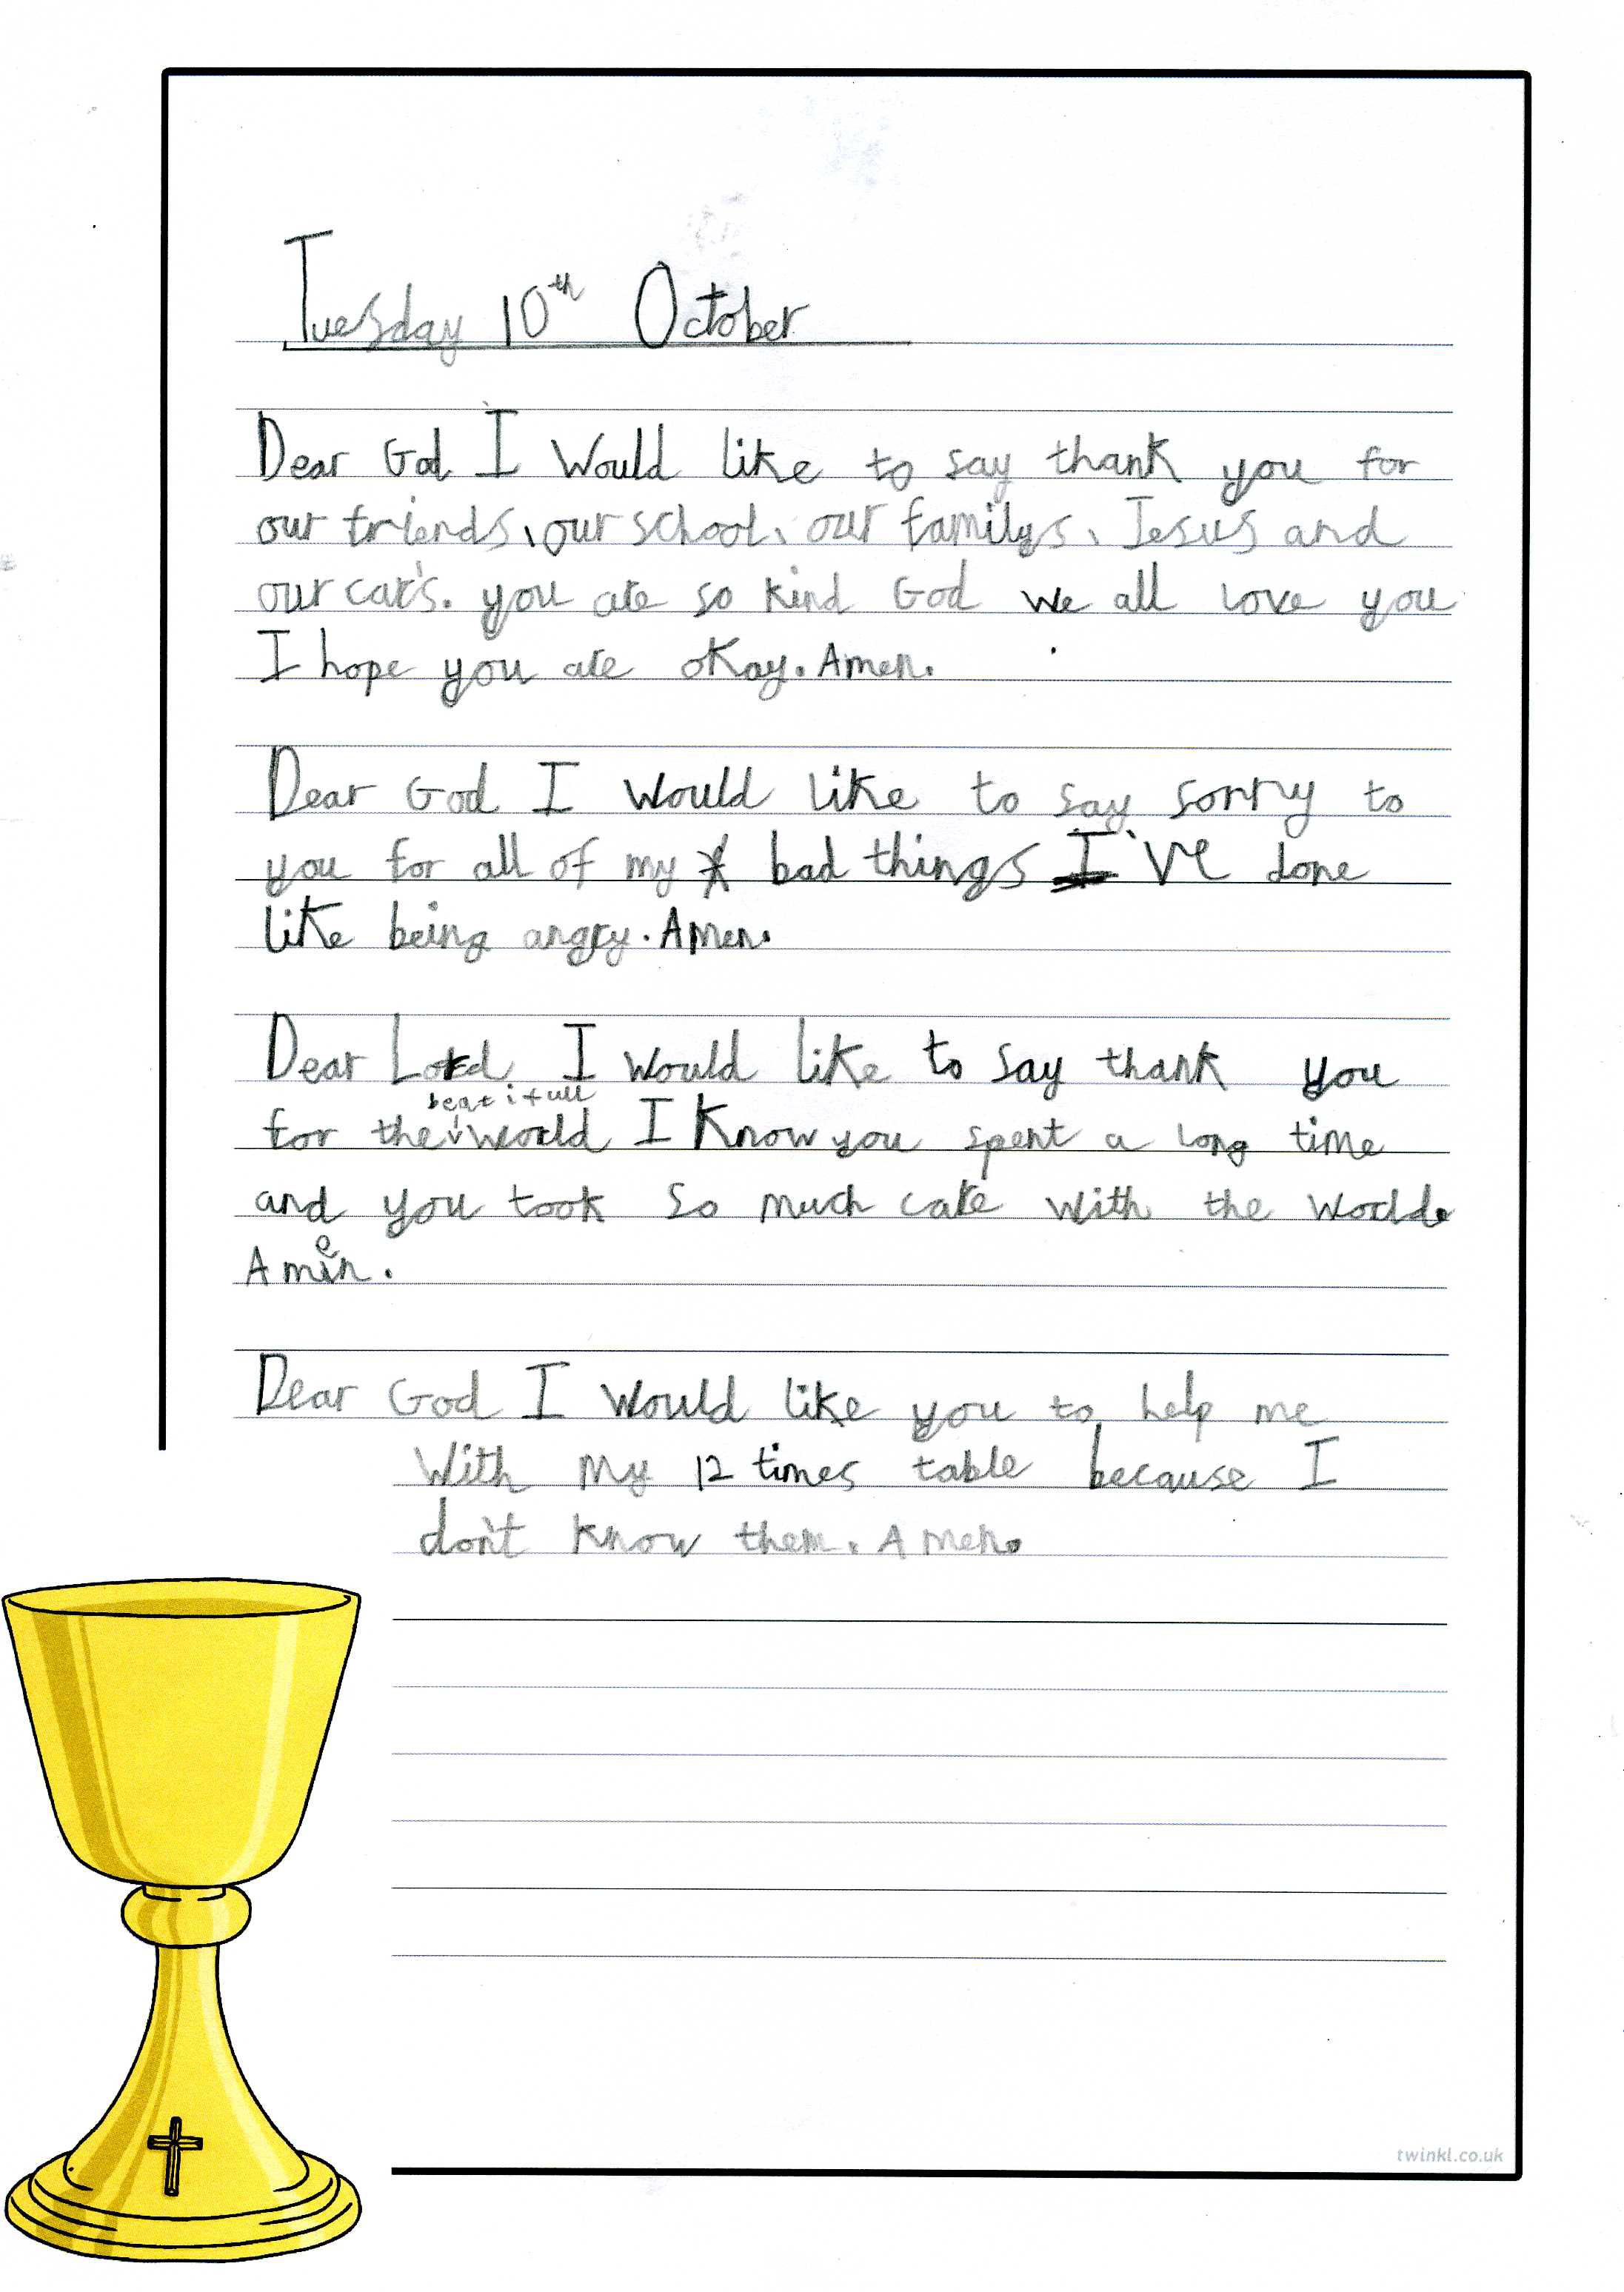 Tuesday 10th October
Dear God I Would like to say thank you for
our friends, our school, our familys, Jesus and
our car's. you are so kind God we all love you
I hope you are okay. Amen.
Dear God I would like to say sorry to
you for all of my bad things I've done
like being angry. Amen.
Dear Lord I would like to say thank you
for the beatifull world I know you spent a long time
and you took so much care with the world.
Amen.
Dear God I would like you to help me
With my 12 times table because I
don't know them. Amen.
twinkl.co.uk